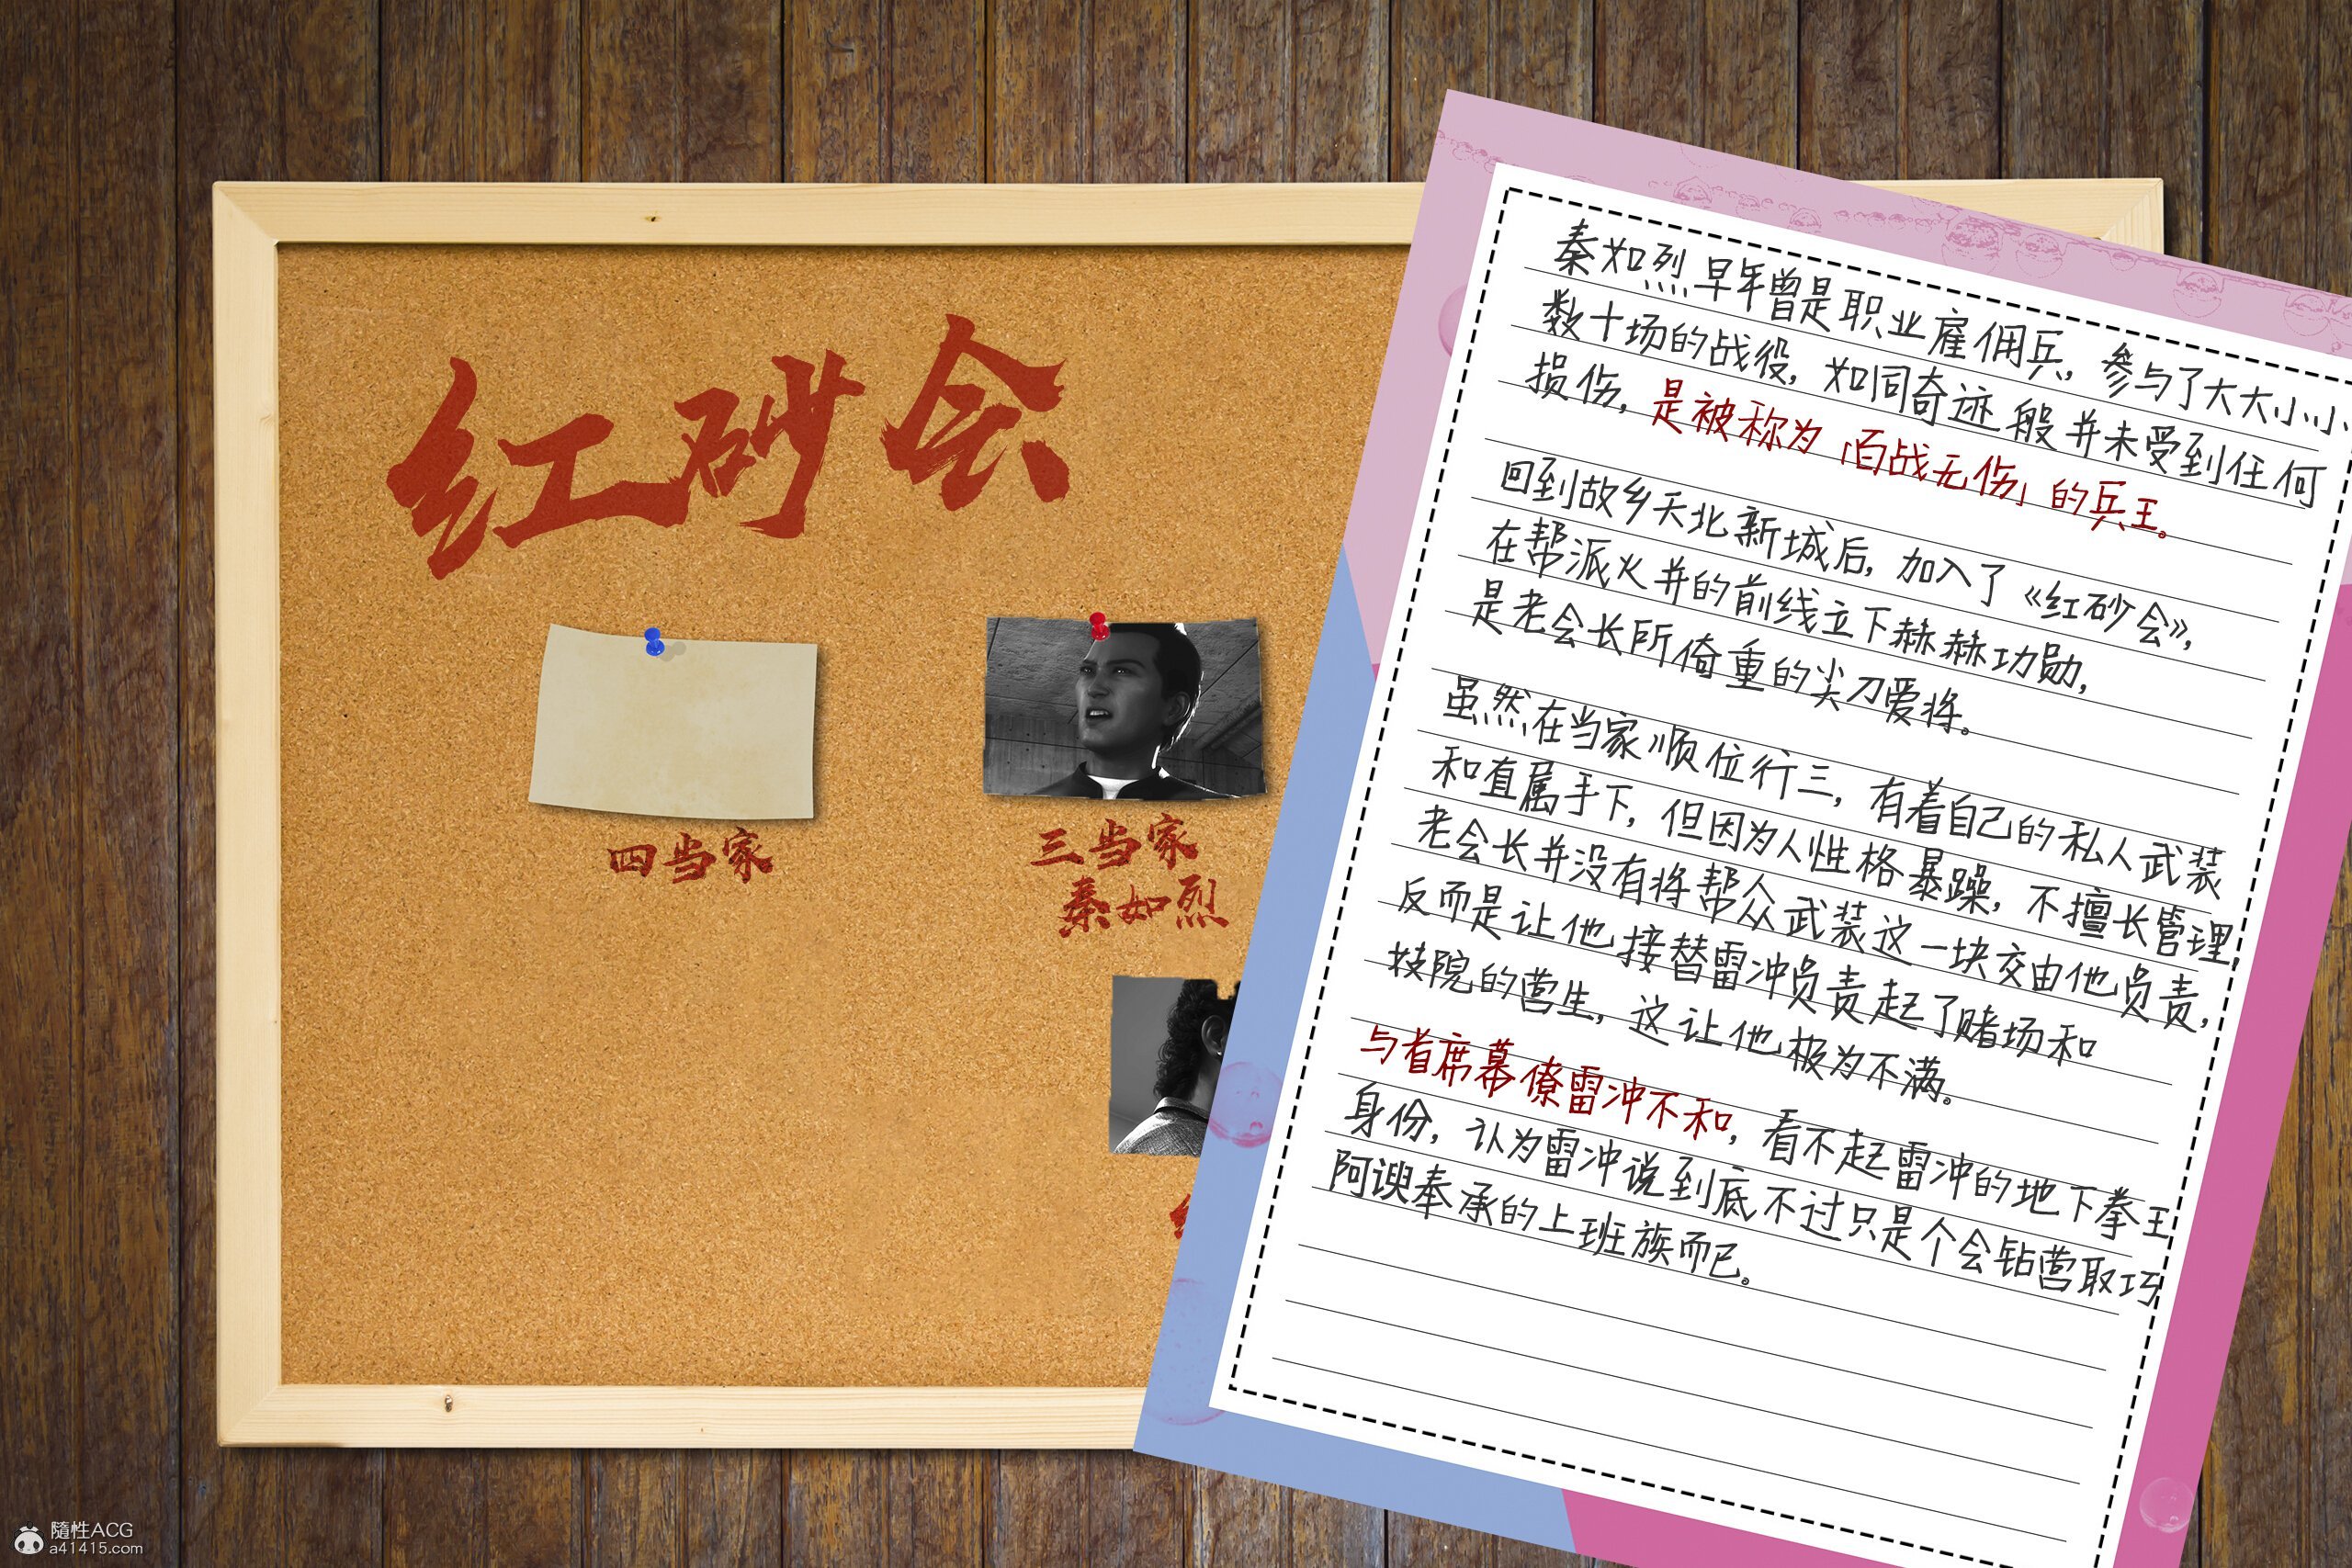 红砂会
四当家
三当家
秦如烈
秦如烈早年曾是职业雇佣兵，参与了大大小小
数十场的战役，如同奇迹般并未受到任何
损伤，是被称为「百战无伤」的兵王。
回到故乡天北新城后，加入了《红砂会》，
在帮派火并的前线立下赫赫功勋，
是老会长所倚重的尖刀爱将。
虽然在当家顺位行三，有着自己的私人武装
和直属手下，但因为人性格暴躁，不擅长管理，
老会长并没有将帮众武装这一块交由他负责，
反而是让他接替雷冲负责起了赌场和
技院的营生，这让他极为不满。
与首席幕僚雷冲不和，看不起雷冲的地下拳王
身份，认为雷冲说到底不过只是个会钻营取巧
阿谀奉承的上班族而已。
隨性ACG
a41415.com